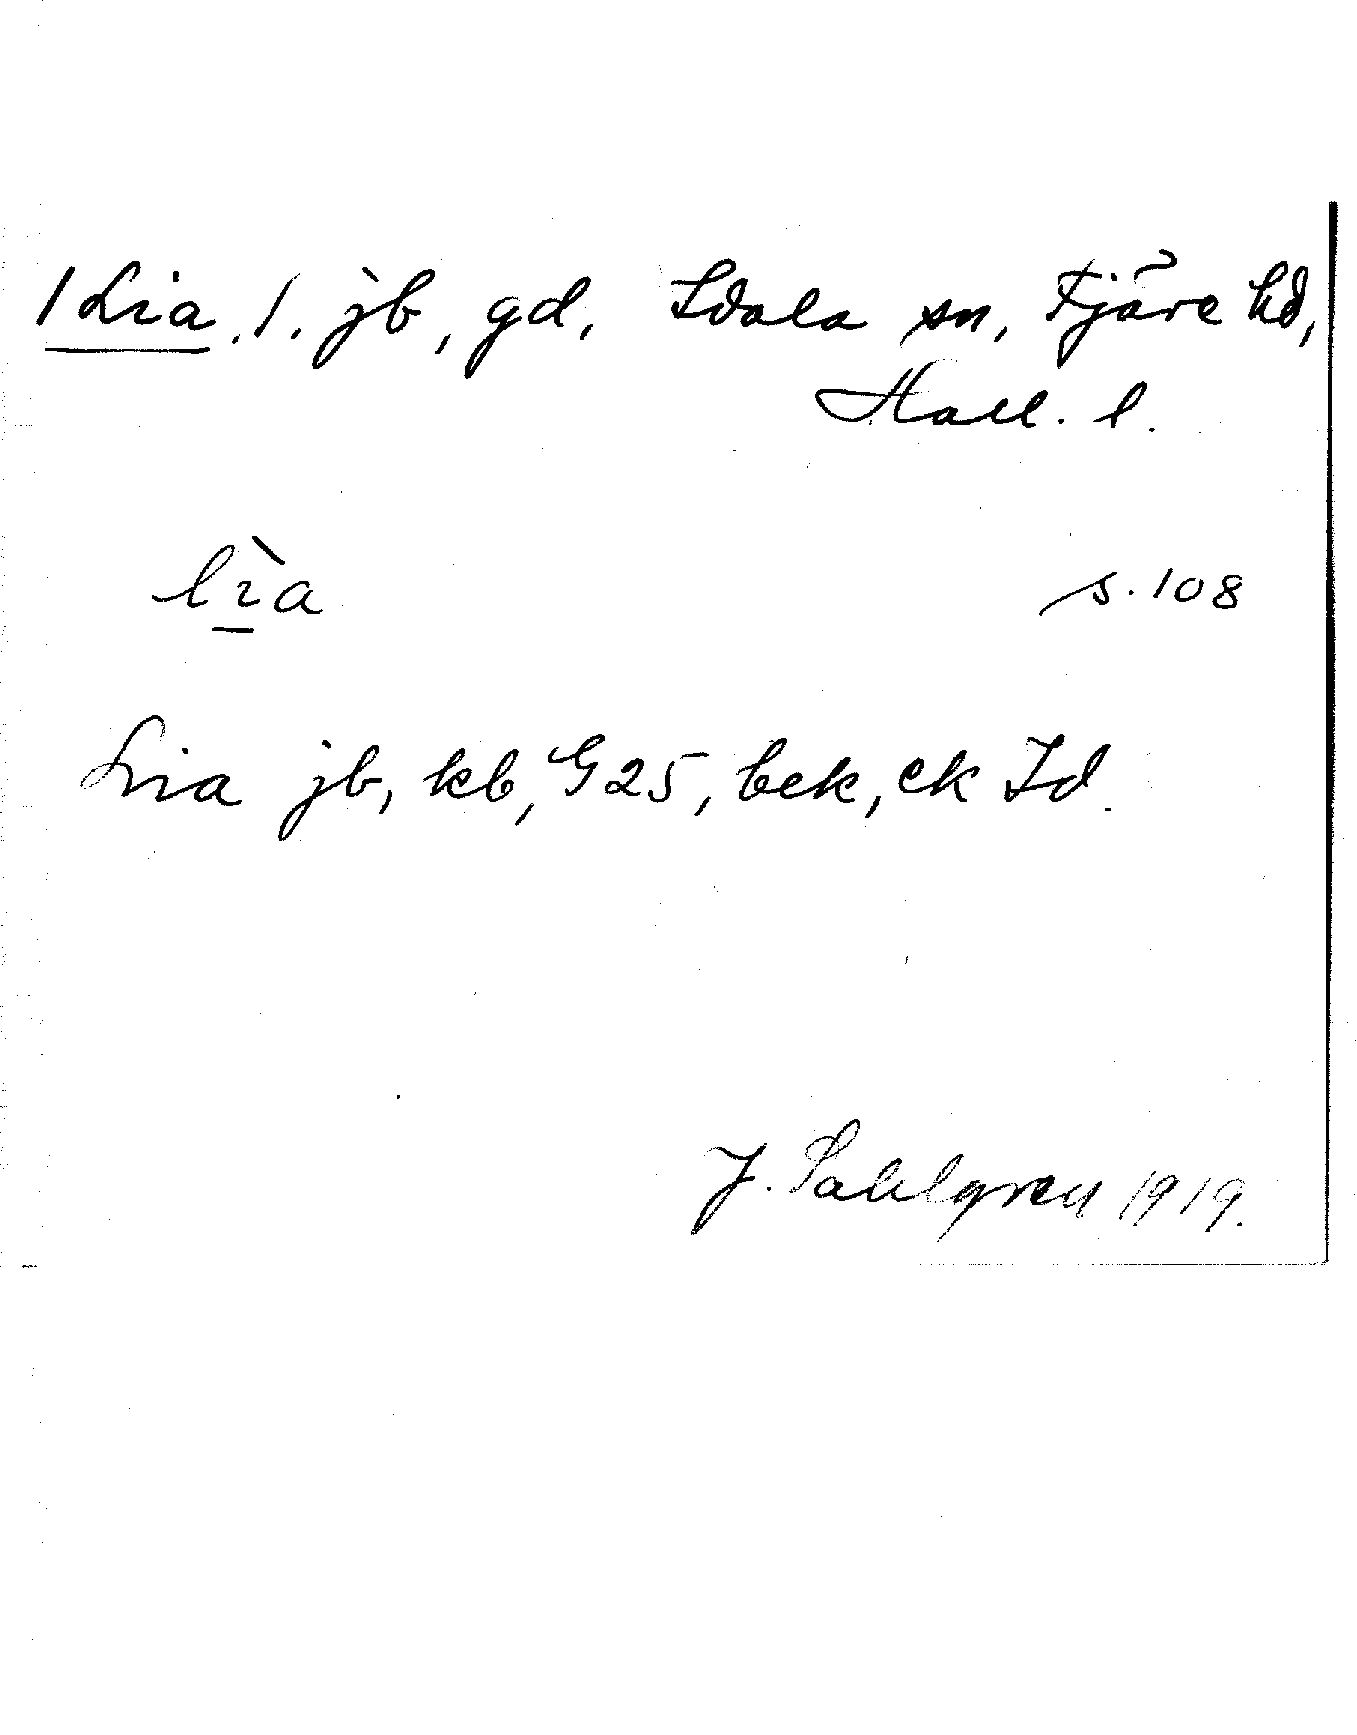 /Lia. /. jb, gd, Idala sn, Fjäre hd,
Hall. l.
lìa s. 108
Lia jb, kb, G 25, bek, ek Id.
J. Sahlgren 1919.